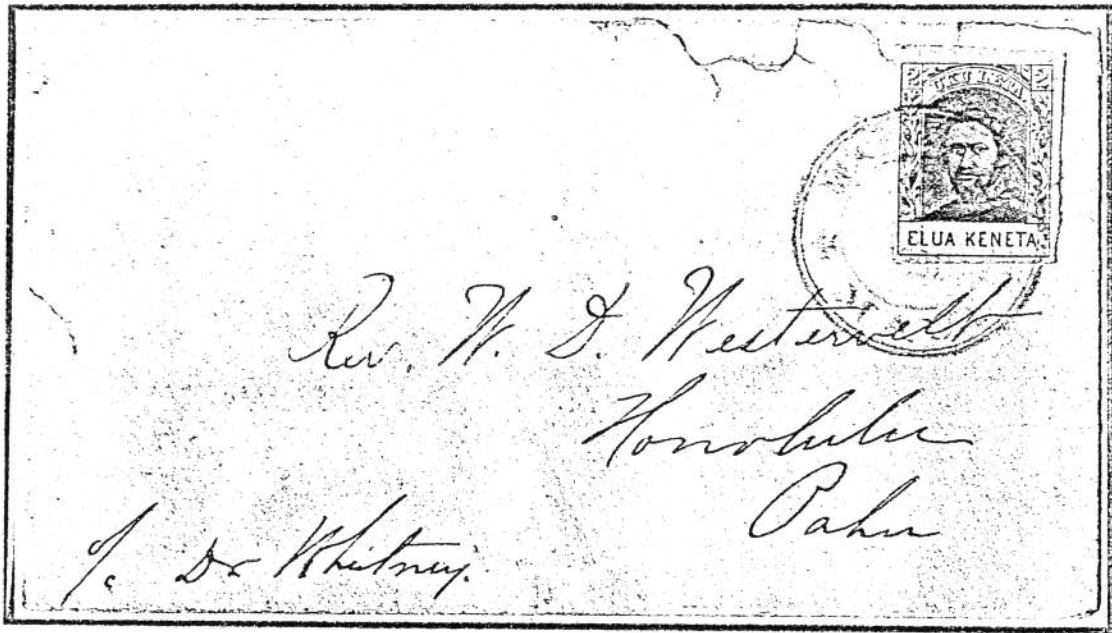 2 UKU LETA 2
ELUA KENETA
Rev. W. D. Westervelt
Honolulu
Oahu
c/o Dr Whitney.